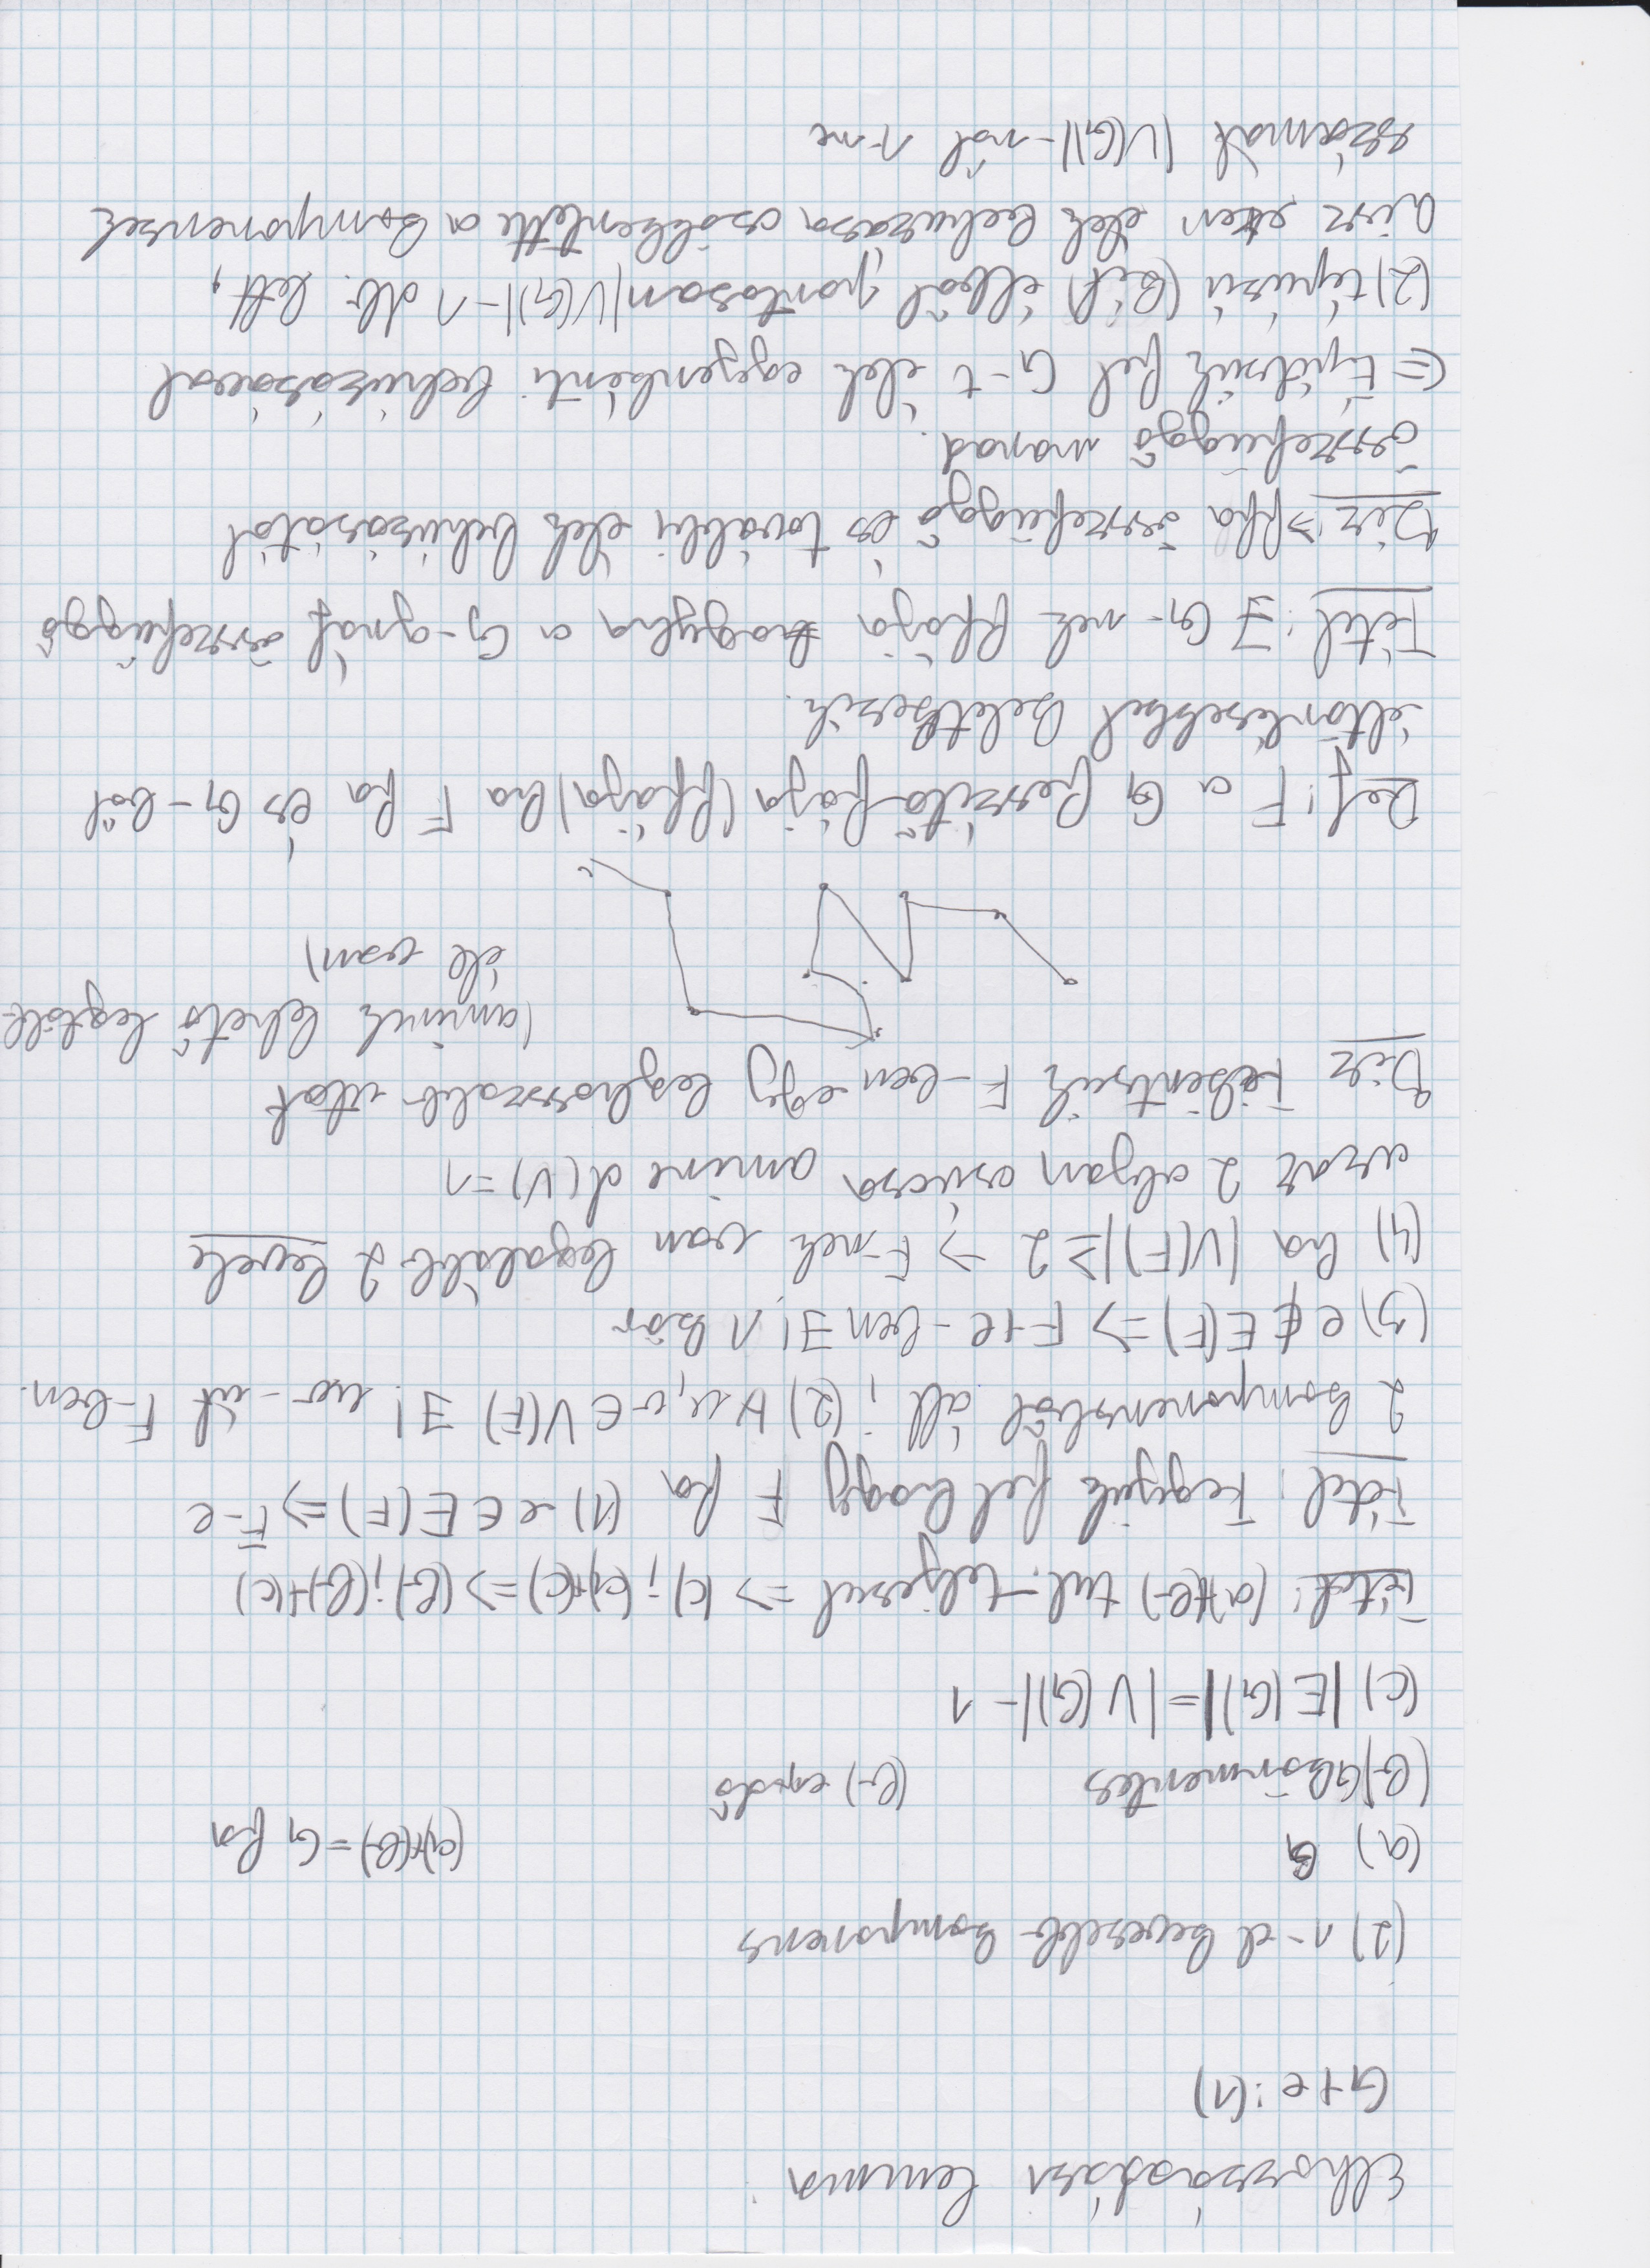 Élhozzáadási lemma:
G+e: (1)
(2) 1-el kevesebb komponens
(a) G
(a)+(b) = G fa
(b) G körmentes (b) erdő
(c) |E(G)| = |V(G)| - 1
Tétel: (a)+(b) tul. teljesül => (c); (a)+(c) => (b); (b)+(c)
Tétel: Tegyük fel hogy F fa (1) e ∈ E(F) => F-e
2 komponensből áll; (2) ∀ u,v ∈ V(F) ∃! uv-út F-ben.
(3) e ∉ E(F) => F+e -ben ∃! 1 kör
(4) ha |V(F)| ≥ 2 => F-nek van legalább 2 levele
azaz 2 olyan csúcsa amire d(v)=1
Biz Tekintsük F-ben egy leghosszabb utat
(aminek lehető legtöbb
éle van)
Def: F a G feszítőfája (ffája) ha F fa és G-ből
éltörlésekkel keletkezik.
Tétel: ∃ G-nek ffája hogyha a G-gráf összefüggő
Biz: => ffa összefüggő és további élek behúzásától
összefüggő marad.
<= Építsük fel G-t élek egyenkénti behúzásával
(2) típusú (kék) élből pontosan |V(G)|-1 db. lett,
hisz ezen élek behúzása csökkentette a komponensek
számát |V(G)|-ről 1-re